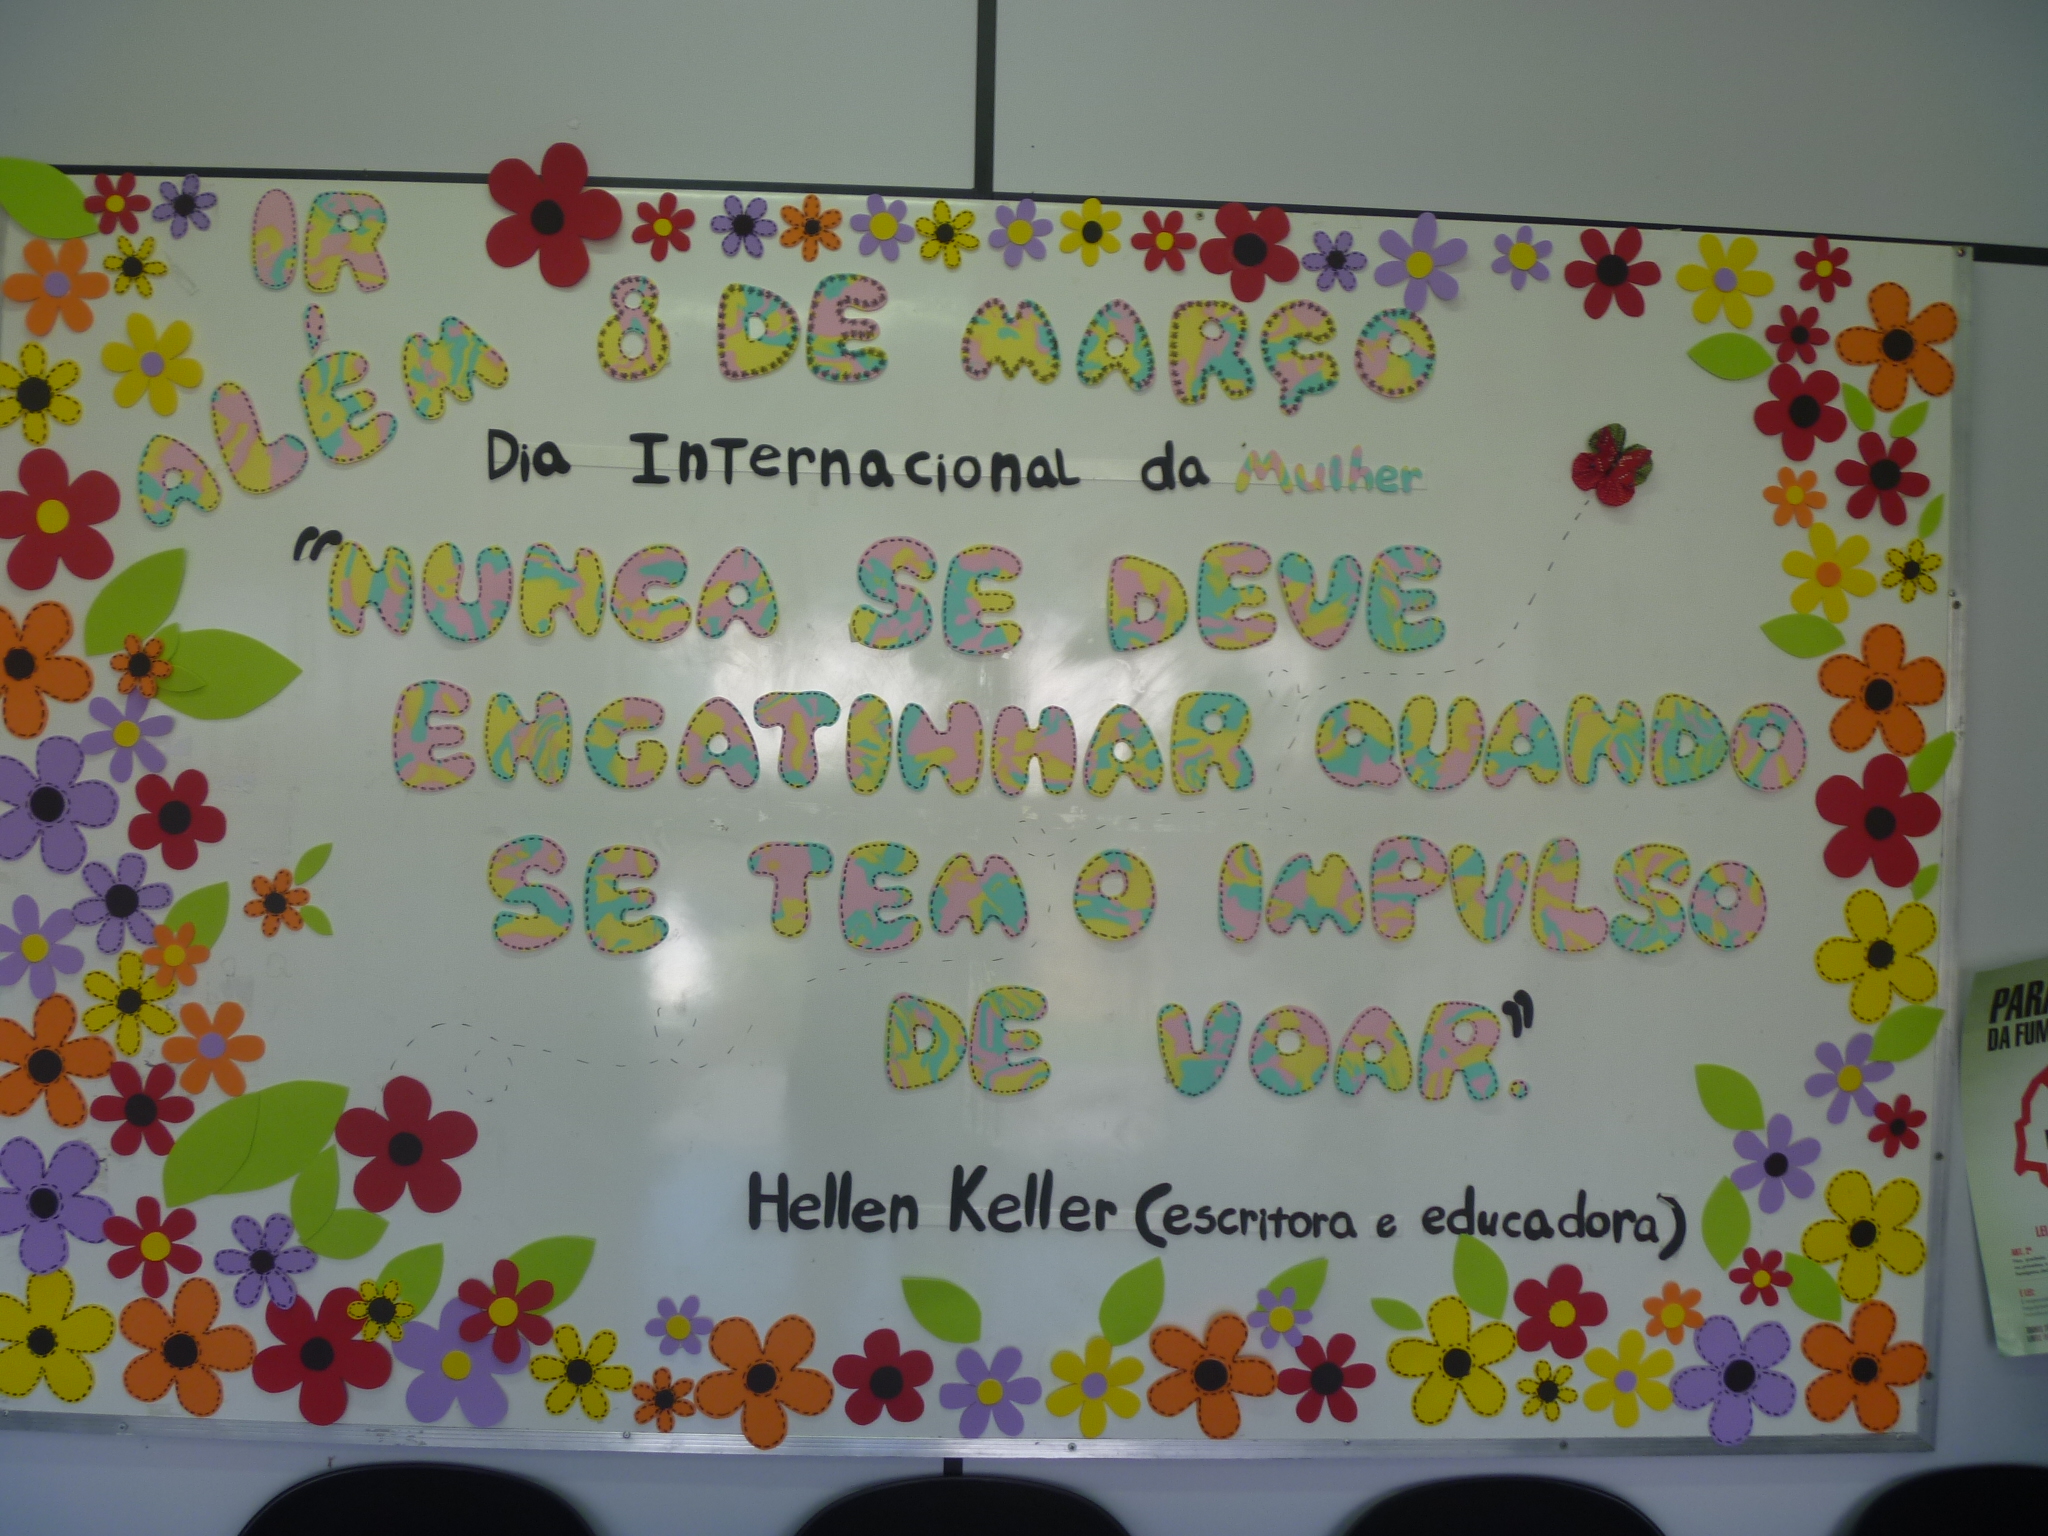 IR
ALÉM
8 DE MARÇO
Dia Internacional da Mulher
"NUNCA SE DEVE
ENGATINHAR QUANDO
SE TEM O IMPULSO
DE VOAR."
Hellen Keller (escritora e educadora)
DA